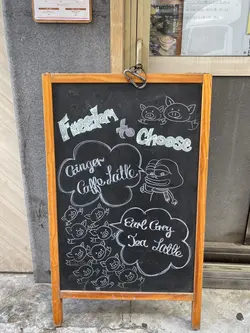 Freedom
to Choose
Ginger
Caffe Latte
Earl Grey
Tea Latte